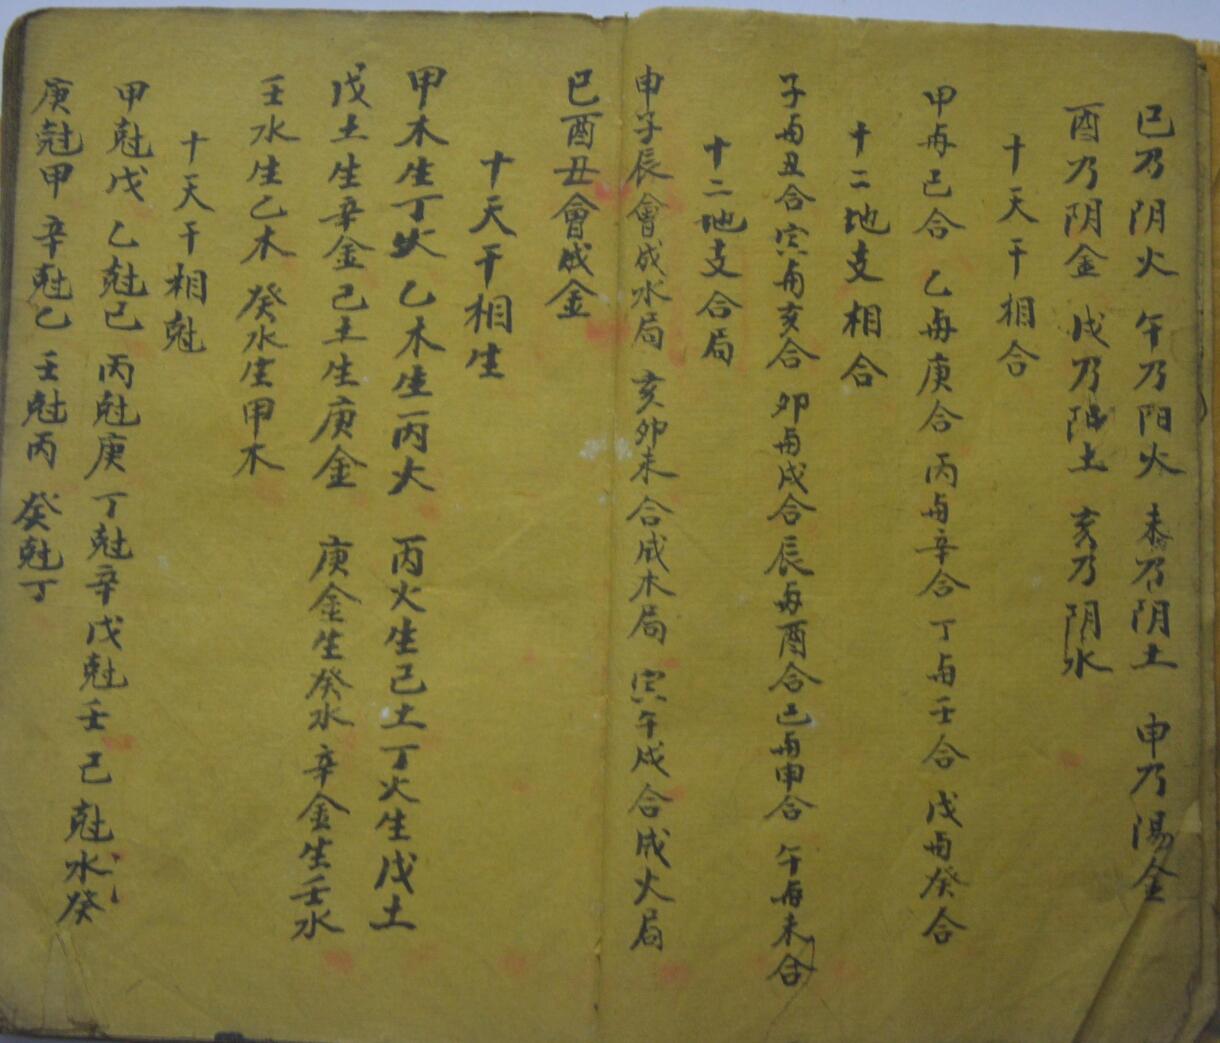 巳乃阴火 午乃阳火 未乃阴土 申乃陽金
酉乃阴金 戌乃阳土 亥乃阴水
十天干相合
甲與己合 乙與庚合 丙與辛合 丁與壬合 戊與癸合
十二地支相合
子與丑合 寅與亥合 卯與戌合 辰與酉合 巳與申合 午與未合
十二地支合局
申子辰會成水局 亥卯未合成木局 寅午戌合成火局
巳酉丑會成金
十天干相生
甲木生丁火 乙木生丙火 丙火生己土 丁火生戊土
戊土生辛金 己土生庚金 庚金生癸水 辛金生壬水
壬水生乙木 癸水生甲木
十天干相尅
甲尅戊 乙尅己 丙尅庚 丁尅辛 戊尅壬 己尅水癸
庚尅甲 辛尅乙 壬尅丙 癸尅丁